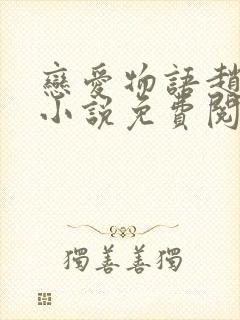 戀愛物語趙
小說免費閱
獨善善獨